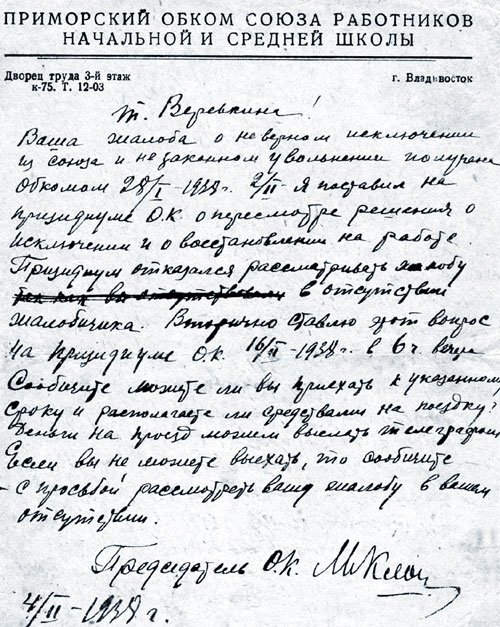 ПРИМОРСКИЙ ОБКОМ СОЮЗА РАБОТНИКОВ
НАЧАЛЬНОЙ И СРЕДНЕЙ ШКОЛЫ
Дворец труда 3-й этаж
к-75. Т. 12-03
г. Владивосток
т. Веревкина!
Ваша жалоба о неверном исключении
из союза и незаконном увольнении получена
Обкомом 28/I-1938г. 2/II-Я поставил на
призидиуме О.К. о пересмотре решения о
исключении и о восстановлении на работе.
Призидиум отказался рассматривать жалобу
так как вы отсутствовали в отсутствии
жалобщика. Вторично ставлю этот вопрос
на призидиуме О.К. 16/II-1938г. в 6 ч. вечера
Сообщите можете ли вы приехать к указанному
сроку и располагаете ли средствами на поездку?
Деньги на проезд можем выслать телеграфом.
Если вы не можете выехать, то сообщите
- с просьбой рассмотреть вашу жалобу в вашем
отсутствии.
Председатель О.К.
4/II-1938 г.